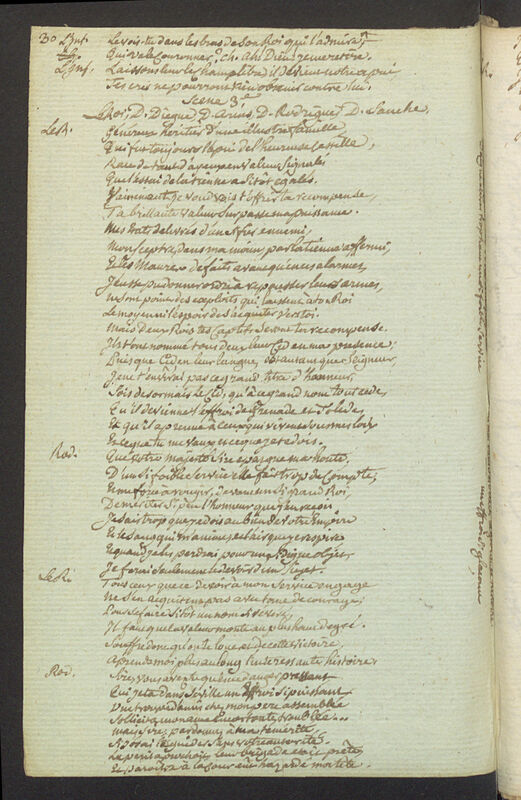 30 L'Inf. Le vois-tu dans les bras de son Roi qui l'admire
Qui va le couronner, Ch. Ah Dieu je me retire
L'Inf. Laissons leur le champ libre il devient notre apui
Tes cris ne pourront rien obtenir contre lui.
Scene 3e
Le Roi, D. Diegue, D. Arias, D. Rodrigue, D. Sanche.
Le R. Genereux heritier d'une illustre famille,
Qui fut toujours l'apui de l'heureuse Castille,
Race de tant d'ayeux en valeur signalés
Que l'essai de la tienne a sitôt égalés.
J'aimerais je voudrais t'offrir ta recompense,
Ta brillante valeur surpasse ma puissance.
Mes états delivrés d'un si fier ennemi,
Mon sceptre dans ma main par la tienne affermi,
Et les Maures defaits avant qu'en ces alarmes,
J'eusse pu donner ordre a repousser leurs armes,
Ne sont point des exploits qui laissent a ton Roi
Le moyen ni l'espoir de s'acquiter vers toi.
Mais deux Rois tes captifs seront ta recompense.
Ils t'ont nommé tous deux leur Cid en ma presence;
Puisque Cid en leur langue est autant que Seigneur,
Je ne t'envirai pas ce grand titre d'honneur,
Sois desormais le Cid, qu'à ce grand nom tout cede,
Qu'il devienne l'effroi de Grenade et Tolede,
Et qu'il aprenne à ceux qui vivent sous mes loix
Et ce que tu me vaux et ce que je te dois.
Rod. Que votre majesté Sire epargne ma honte,
D'un si foible service elle fait trop de compte,
Et me force a rougir, devant un si grand Roi,
De meriter si peu l'honneur que j'en reçoi
Je sais trop que je dois au bien de votre Empire
Et le sang qui m'anime, et l'air que je respire
Et quand je les perdrai pour un si digne objet,
Je ferai seulement le devoir d'un sujet.
Le Roi Tous ceux que ce devoir à mon service engage
Ne s'en acquitent pas avec tant de courage,
Il faut que la valeur monte au plus haut degré.
Souffre donc qu'on te loue, et de cette victoire
Aprends moi plus au long l'interessante histoire.
Rod. Sire vous avez sçu qu'en ce danger pressant
Qui jeta dans Séville un effroi si puissant
Une troupe d'amis chez mon pere assemblée
Sollicita mon ame encor toute troublée...
mais, Sire, pardonnez à ma temerité,
Si j'osai l'employer sans votre autorité.
Le peril aprochoit, leur brigade etoit prête,
Et paroître à la cour eut hazardé ma tête.